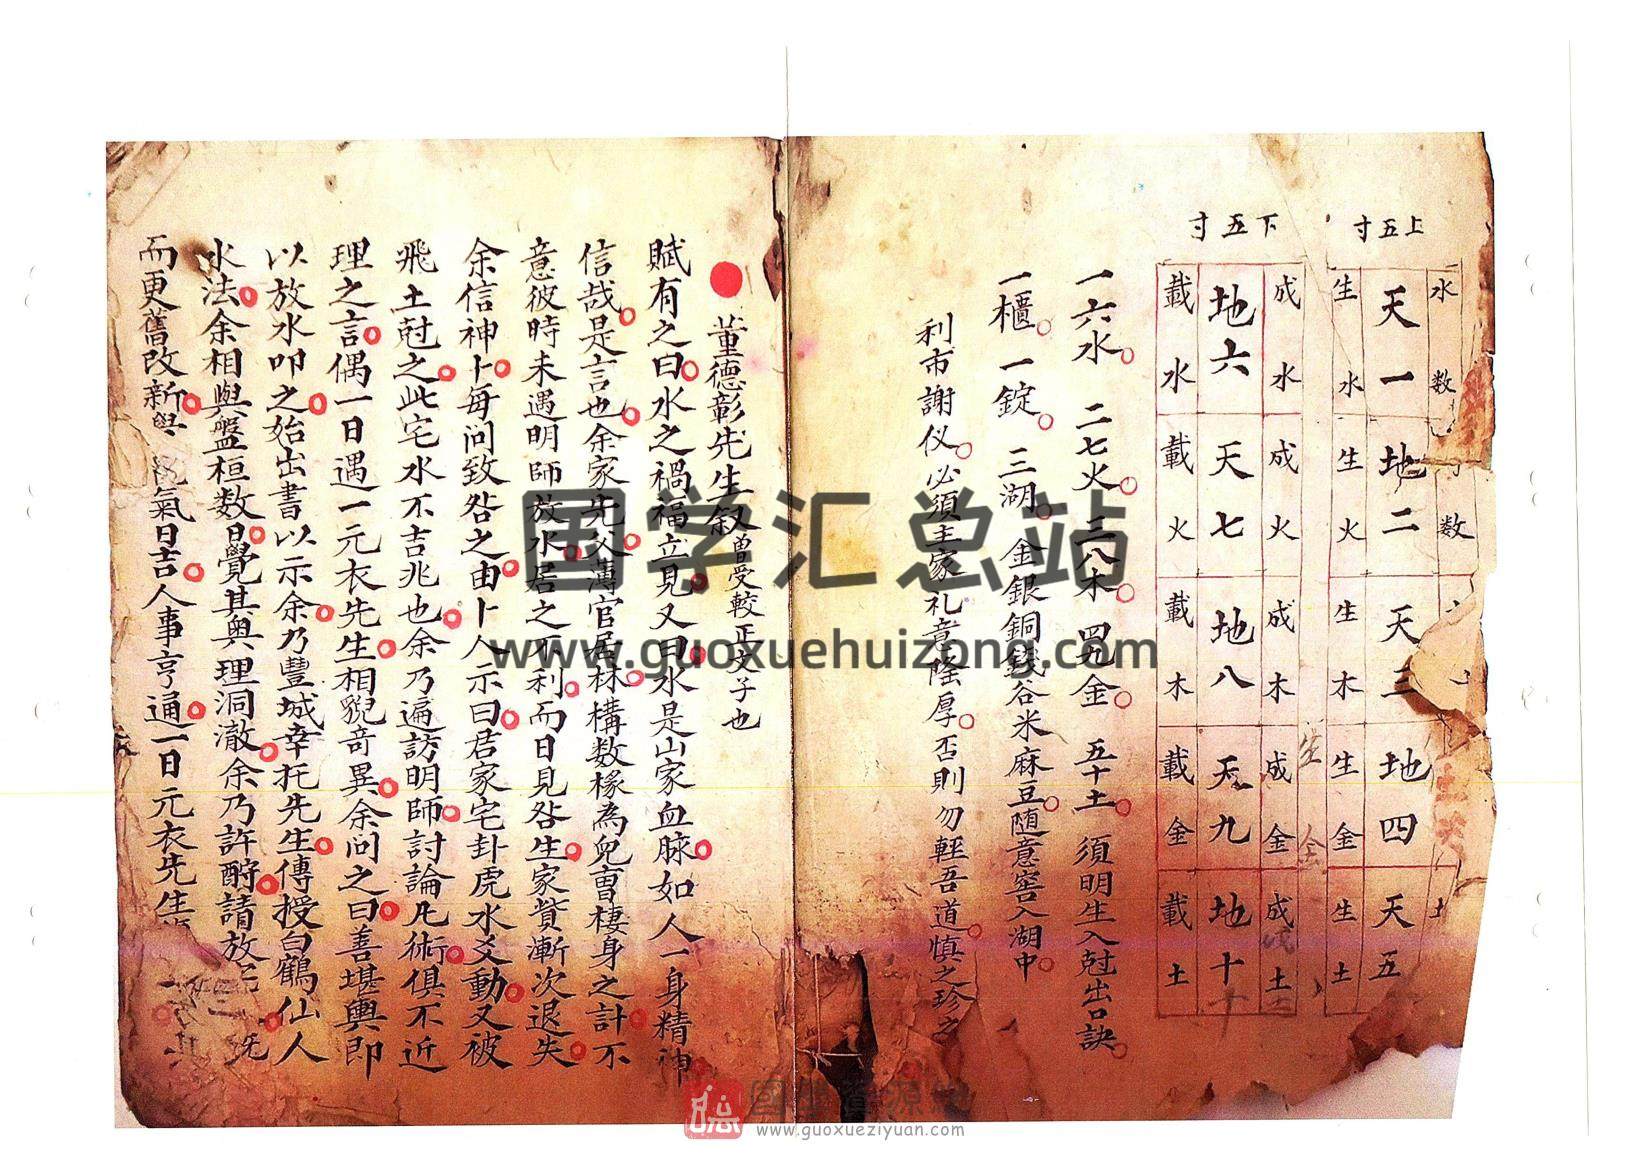 上五寸
水数 数 土
天一 地二 天三 地四 天五
生水 生火 生木 生金 生土
生金
下五寸
成水 成火 成木 成金 成土
地六 天七 地八 天九 地十
載水 載火 載木 載金 載土
一六水 二七火 三八木 四九金 五十土 須明生入尅出口訣
一櫃 一錠 三湖 金銀銅錢谷米麻豆随意窖入湖中
利市謝仪必須主家礼意隆厚否則勿輕吾道慎之珍之
董德彰先生叙曾受較正文子也
賦有之曰水之禍福立見又曰水是山家血脉如人一身精神
信哉是言也余家先父薄官居林構数椽為兒曹棲身之計不
意彼時未遇明師放水居之不利而日見咎生家貲漸次退失
余信神卜每问致咎之由卜人示曰君家宅卦虎水爻動又被
飛土尅之此宅水不吉兆也余乃遍訪明師討論凡術俱不近
理之言偶一日遇一元衣先生相貌奇異余问之曰善堪輿即
以放水叩之始出書以示余乃豐城幸托先生傳授白鶴仙人
水法余相與盤桓数日覺其奥理洞澈余乃許酧請放
而更舊改新與 氣日吉人事亨通一日元衣先生
国学汇总站
www.guoxuehuizong.com
國學資源網
www.guoxueziyuan.com